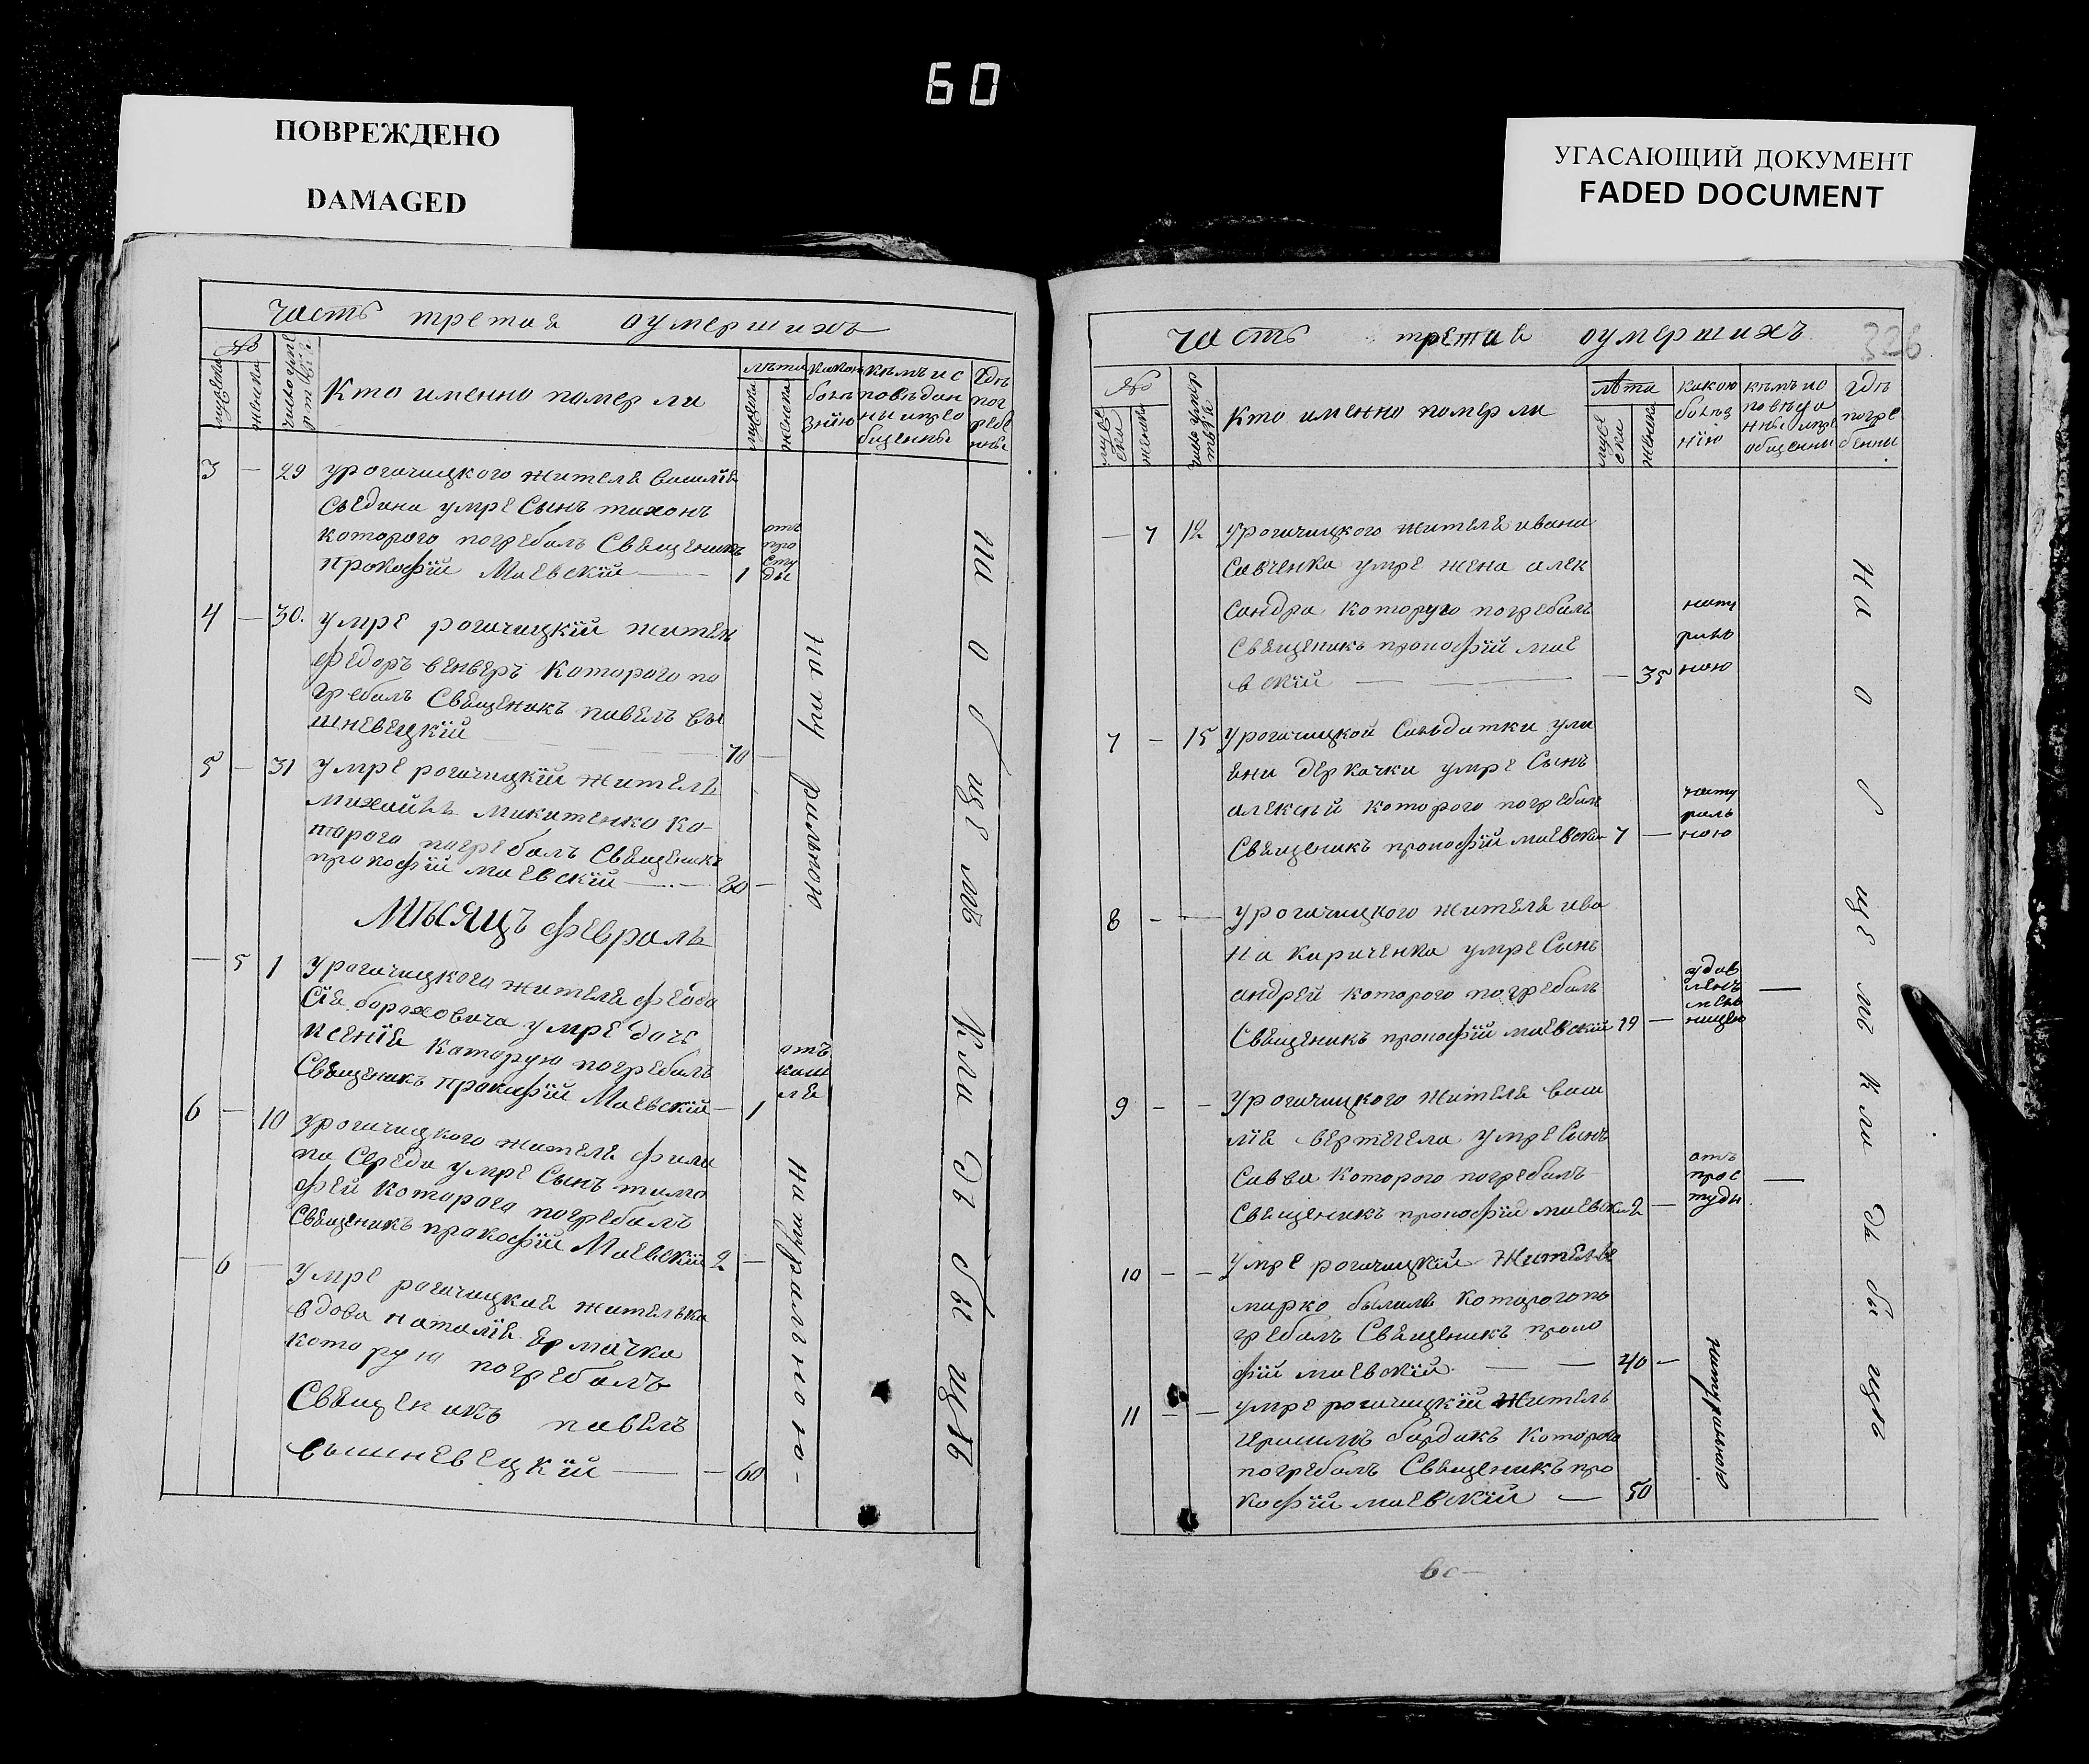 60
ПОВРЕЖДЕНО
DAMAGED
УГАСАЮЩИЙ ДОКУМЕНТ
FADED DOCUMENT
часть третая оумершихъ
№
мужеска
женска
Кто именно померли
лѣта
мужеска
женска
какою
болѣ
знїю
кѣмъ ис
повѣдан
ны и прео
бщенны
гдѣ
пог
ребе
нны
3 — 29 у рогачицкого жителя василїя
Сведина умре Сынъ тихонъ
которого погребалъ Священикъ
прокофїй Маевскїй — 1
отъ
про
сту
ды
4 — 30. умре рогачицкїй жител
федоръ венверъ которого по
гребалъ Священикъ павелъ ви
шневецкїй — 70 —
5 — 31 умре рогачицкїй житель
михайлъ микитенко ко-
торого погребалъ Священикъ
прокофїй маевскїй — 20 —
натуральною
Мѣсяцъ февраль
— 5 1 у рогачицкого жителя феодо
сїя бороховича умре дочь
ксенїя которую погребалъ
Священикъ прокофїй Маевскїй — 1
отъ
каш
ля
6 — 10 у рогачицкого жителя фили
па Середы умре Сынъ тимо
фей которого погребалъ
Священикъ прокофїй Маевскїй 2 —
— 6 — умре рогачицкая жителька
вдова наталїя ермачка
которую погребалъ
Священикъ павелъ
вышневецкїй — — 60
натуральною-
На Общемъ Кладбыщѣ
часть третая оумершихъ
326
№
муже
ска
женска
число умер
Кто именно померли
лѣта
муже
ска
женска
какою
болѣз
нїю
кѣмъ ио
повѣда
нны и пре
общенны
гдѣ
погре
бенны
— 7 12 У рогачицкого жителя ивана
Савченка умре жена алек
сандра которую погребалъ
Священикъ прокофїй мае
вскїй — — — 35
нату
раль
ною
7 — 15 у рогачицкой Салдатки ули
яни деркачки умре Сынъ
алексѣй которого погребалъ
Священикъ прокофїй маевски 7 —
нату
раль
ною
8 — — у рогачицкого жителя ива
на кириченка умре Сынъ
андрей которого погребалъ
Священикъ прокофїй маевскїй 19 —
удав
ленъ
мель
ницею —
9 — — У рогачицкого жителя васи
лїя вертегела умре Сынъ
Савва которого погребалъ
Священикъ прокофїй маевски 2 —
отъ
прос
туды —
10 — — Умре рогачицкїй житель
марко былимъ которого по
гребалъ Священикъ проко
фїй маевскїй — — 40 —
11 — — умре рогачицкїй житель
Герасимъ бардакъ которого
погребалъ Священикъ про
кофїй маевскїй — 50
натуральною
На Общемъ Кладбищѣ
60